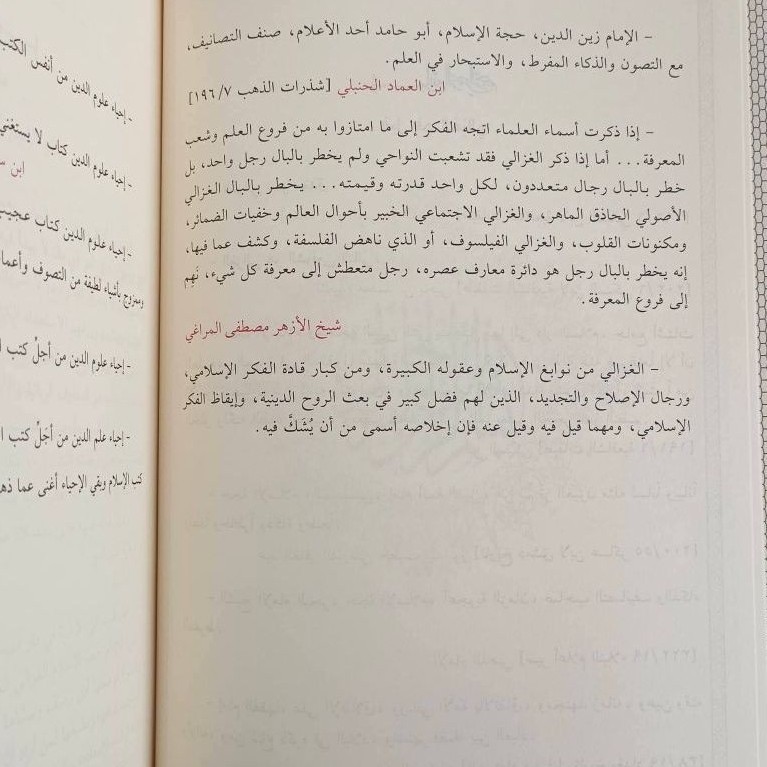 – الإمام زين الدين، حجة الإسلام، أبو حامد أحد الأعلام، صنف التصانيف،
مع التصون والذكاء المفرط، والاستبحار في العلم.
ابن العماد الحنبلي [شذرات الذهب ١٩٦/٧]
– إذا ذكرت أسماء العلماء اتجه الفكر إلى ما امتازوا به من فروع العلم وشعب
المعرفة... أما إذا ذكر الغزالي فقد تشعبت النواحي ولم يخطر بالبال رجل واحد، بل
خطر بالبال رجال متعددون، لكل واحد قدرته وقيمته... يخطر بالبال الغزالي
الأصولي الحاذق الماهر، والغزالي الاجتماعي الخبير بأحوال العالم وخفيات الضمائر،
ومكنونات القلوب، والغزالي الفيلسوف، أو الذي ناهض الفلسفة، وكشف عما فيها،
إنه يخطر بالبال رجل هو دائرة معارف عصره، رجل متعطش إلى معرفة كل شيء، نَهِم
إلى فروع المعرفة.
شيخ الأزهر مصطفى المراغي
– الغزالي من نوابغ الإسلام وعقوله الكبيرة، ومن كبار قادة الفكر الإسلامي،
ورجال الإصلاح والتجديد، الذين لهم فضل كبير في بعث الروح الدينية، وإيقاظ الفكر
الإسلامي، ومهما قيل فيه وقيل عنه فإن إخلاصه أسمى من أن يُشَكَّ فيه.
– إحياء علوم الدين من أنفس الكتب
– إحياء علوم الدين كتاب لا يستغني
ابن
– إحياء علوم الدين كتاب عجيب
وممزوج بأشياء لطيفة من التصوف وأعمال
– إحياء علوم الدين من أجلّ كتب
– إحياء علم الدين من أَجَلّ كتب
كتب الإسلام وبقي الإحياء أغنى عما